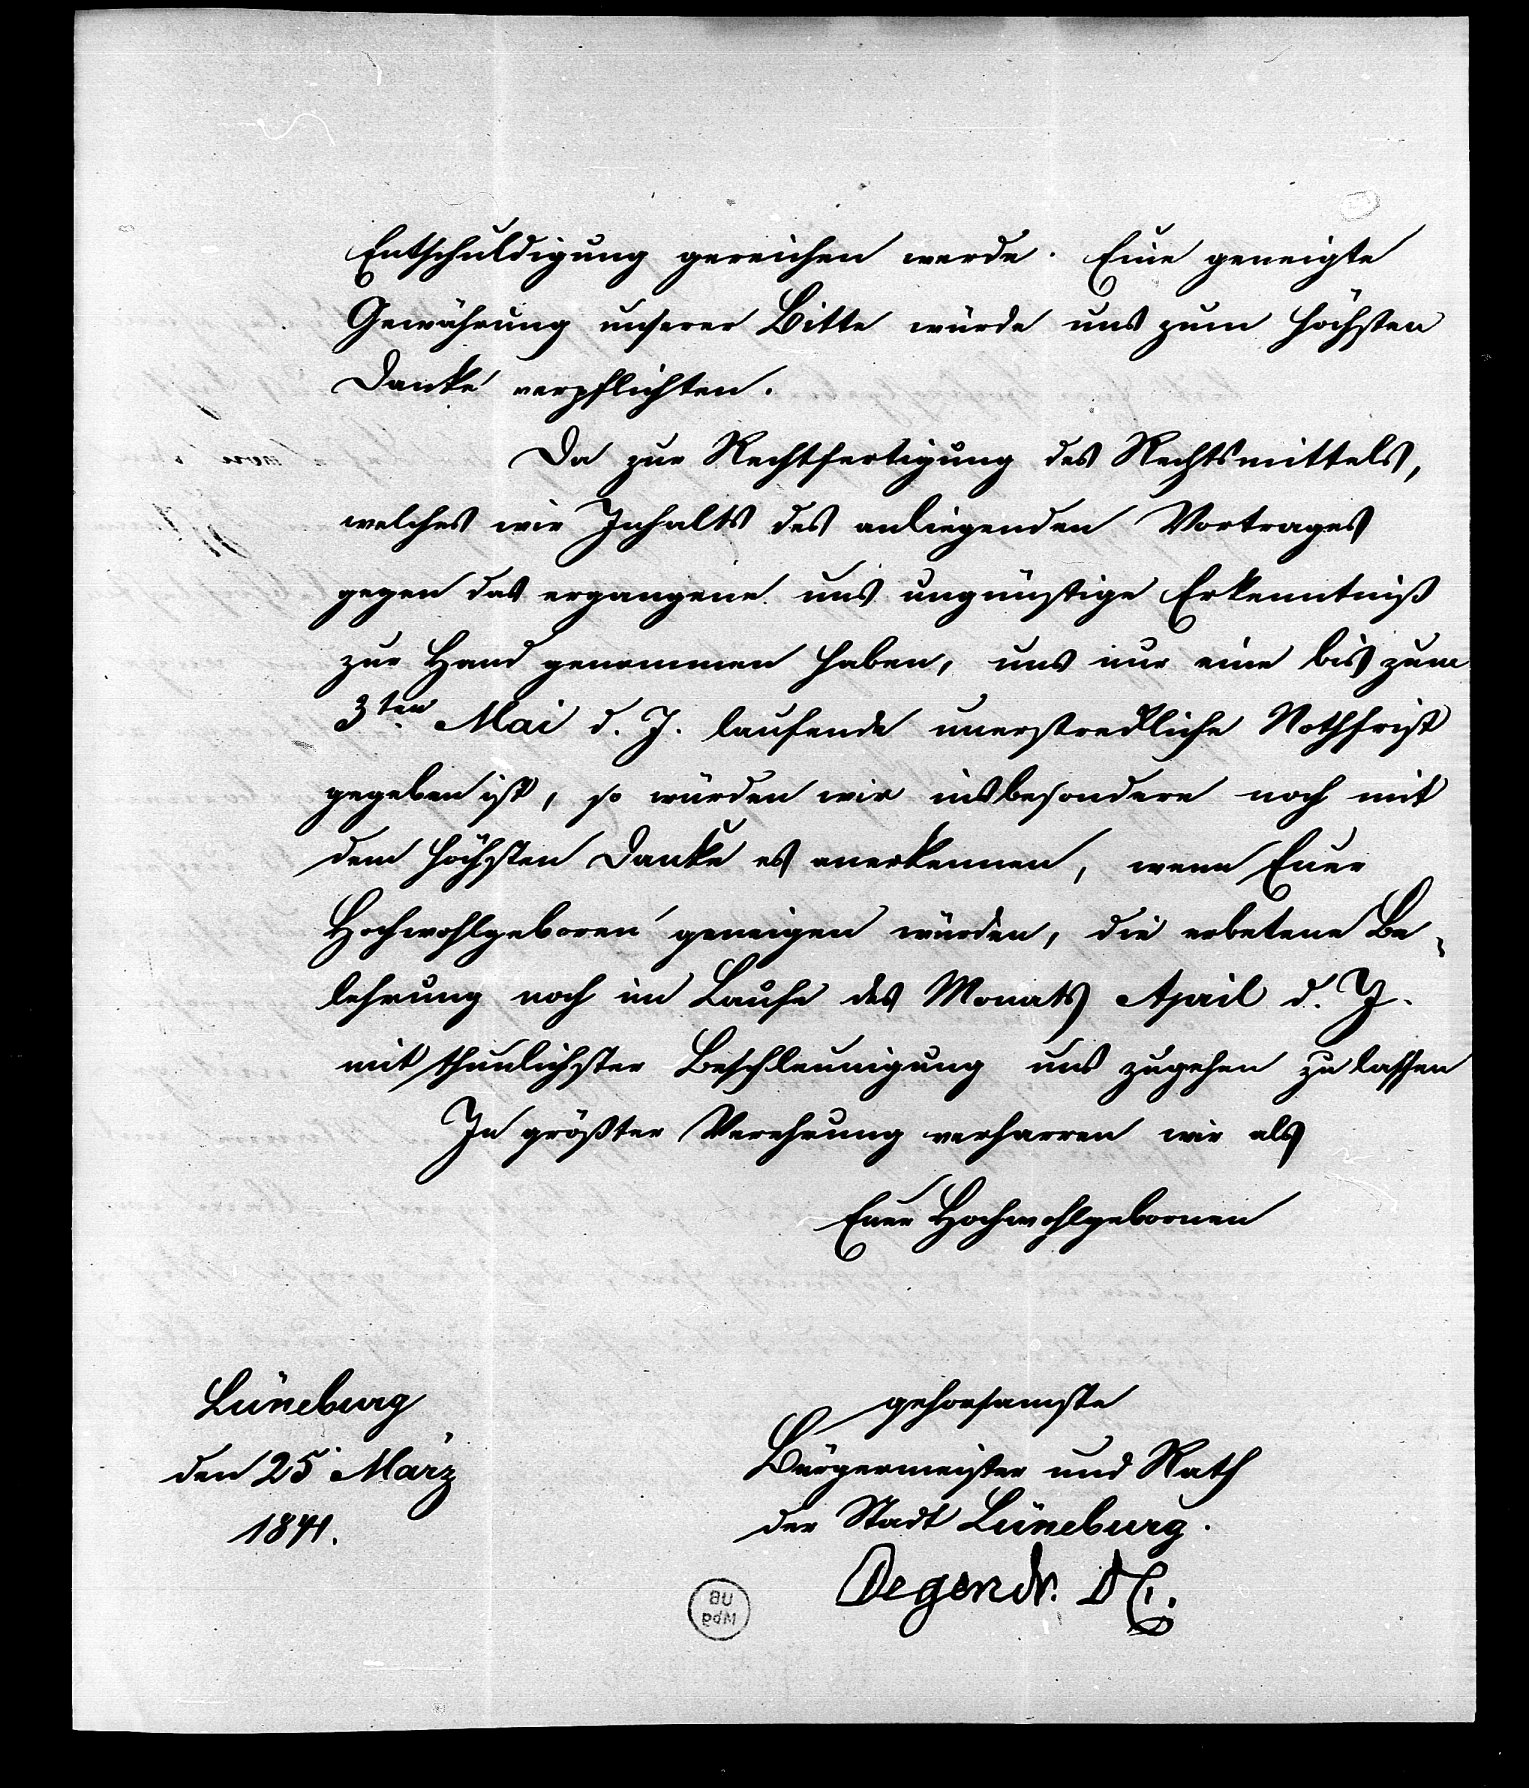 Entschuldigung gereichen werde. Eine geneigte
Gewährung unserer Bitte würde uns zum höchsten
Danke verpflichten.
Da zur Rechtfertigung des Rechtsmittels,
welches wir Inhalts des anliegenden Vortrages
gegen das ergangene uns ungünstige Erkenntniß
zur Hand genommen haben, uns nur eine bis zum
3ten Mai d. J. laufende unerstreckliche Nothfrist
gegeben ist, so würden wir insbesondere noch mit
dem höchsten Danke es anerkennen, wenn Euer
Hochwohlgeboren geneigen würden, die erbetene Be-
lehrung noch im Laufe des Monats April d. J.
mit thunlichster Beschleunigung uns zugehen zu lassen
In größter Verehrung verharren wir als
Euer Hochwohlgebornen
gehorsamste
Bürgermeister und Rath
der Stadt Lüneburg.
Lüneburg
den 25 März
1841.
UB
Mbg